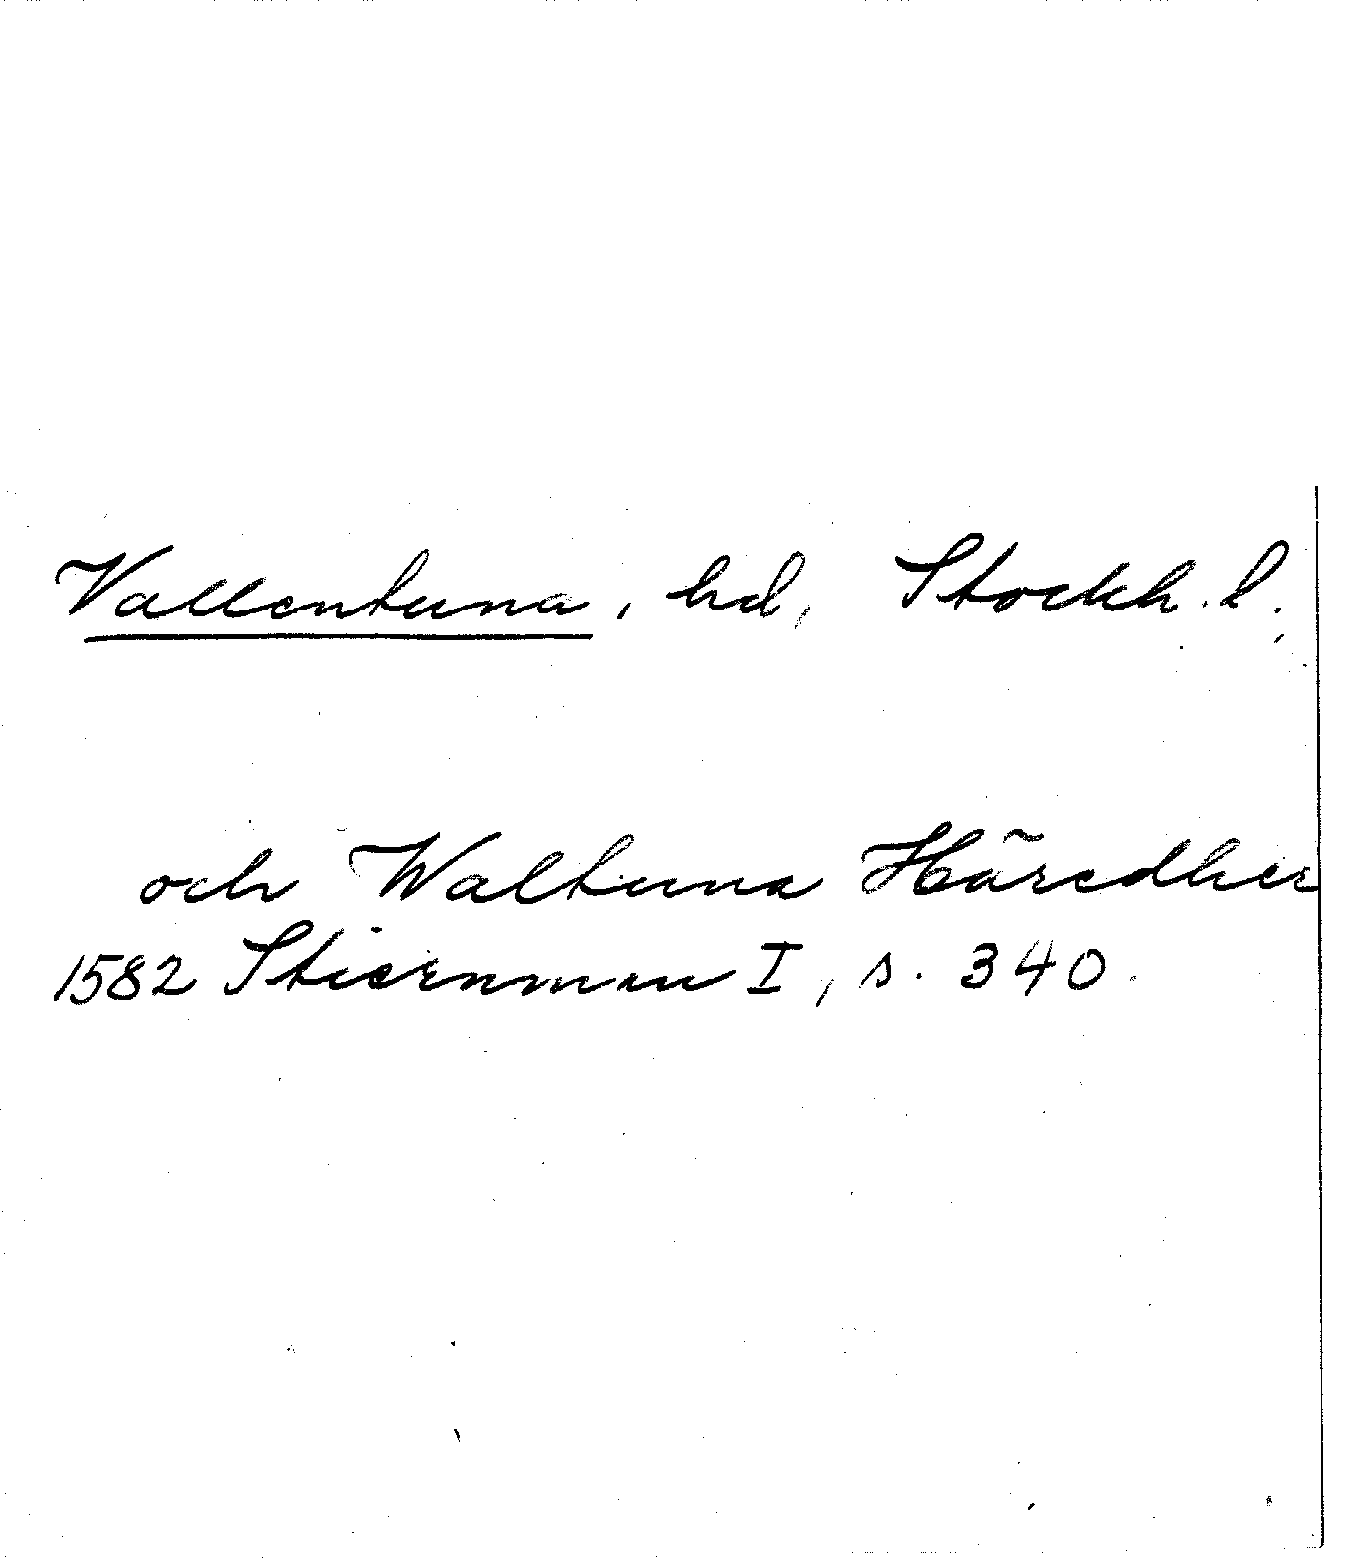 Vallentuna, hd, Stockh. l.
och Waltuna Häredher
1582 Stiernman I, s. 340.